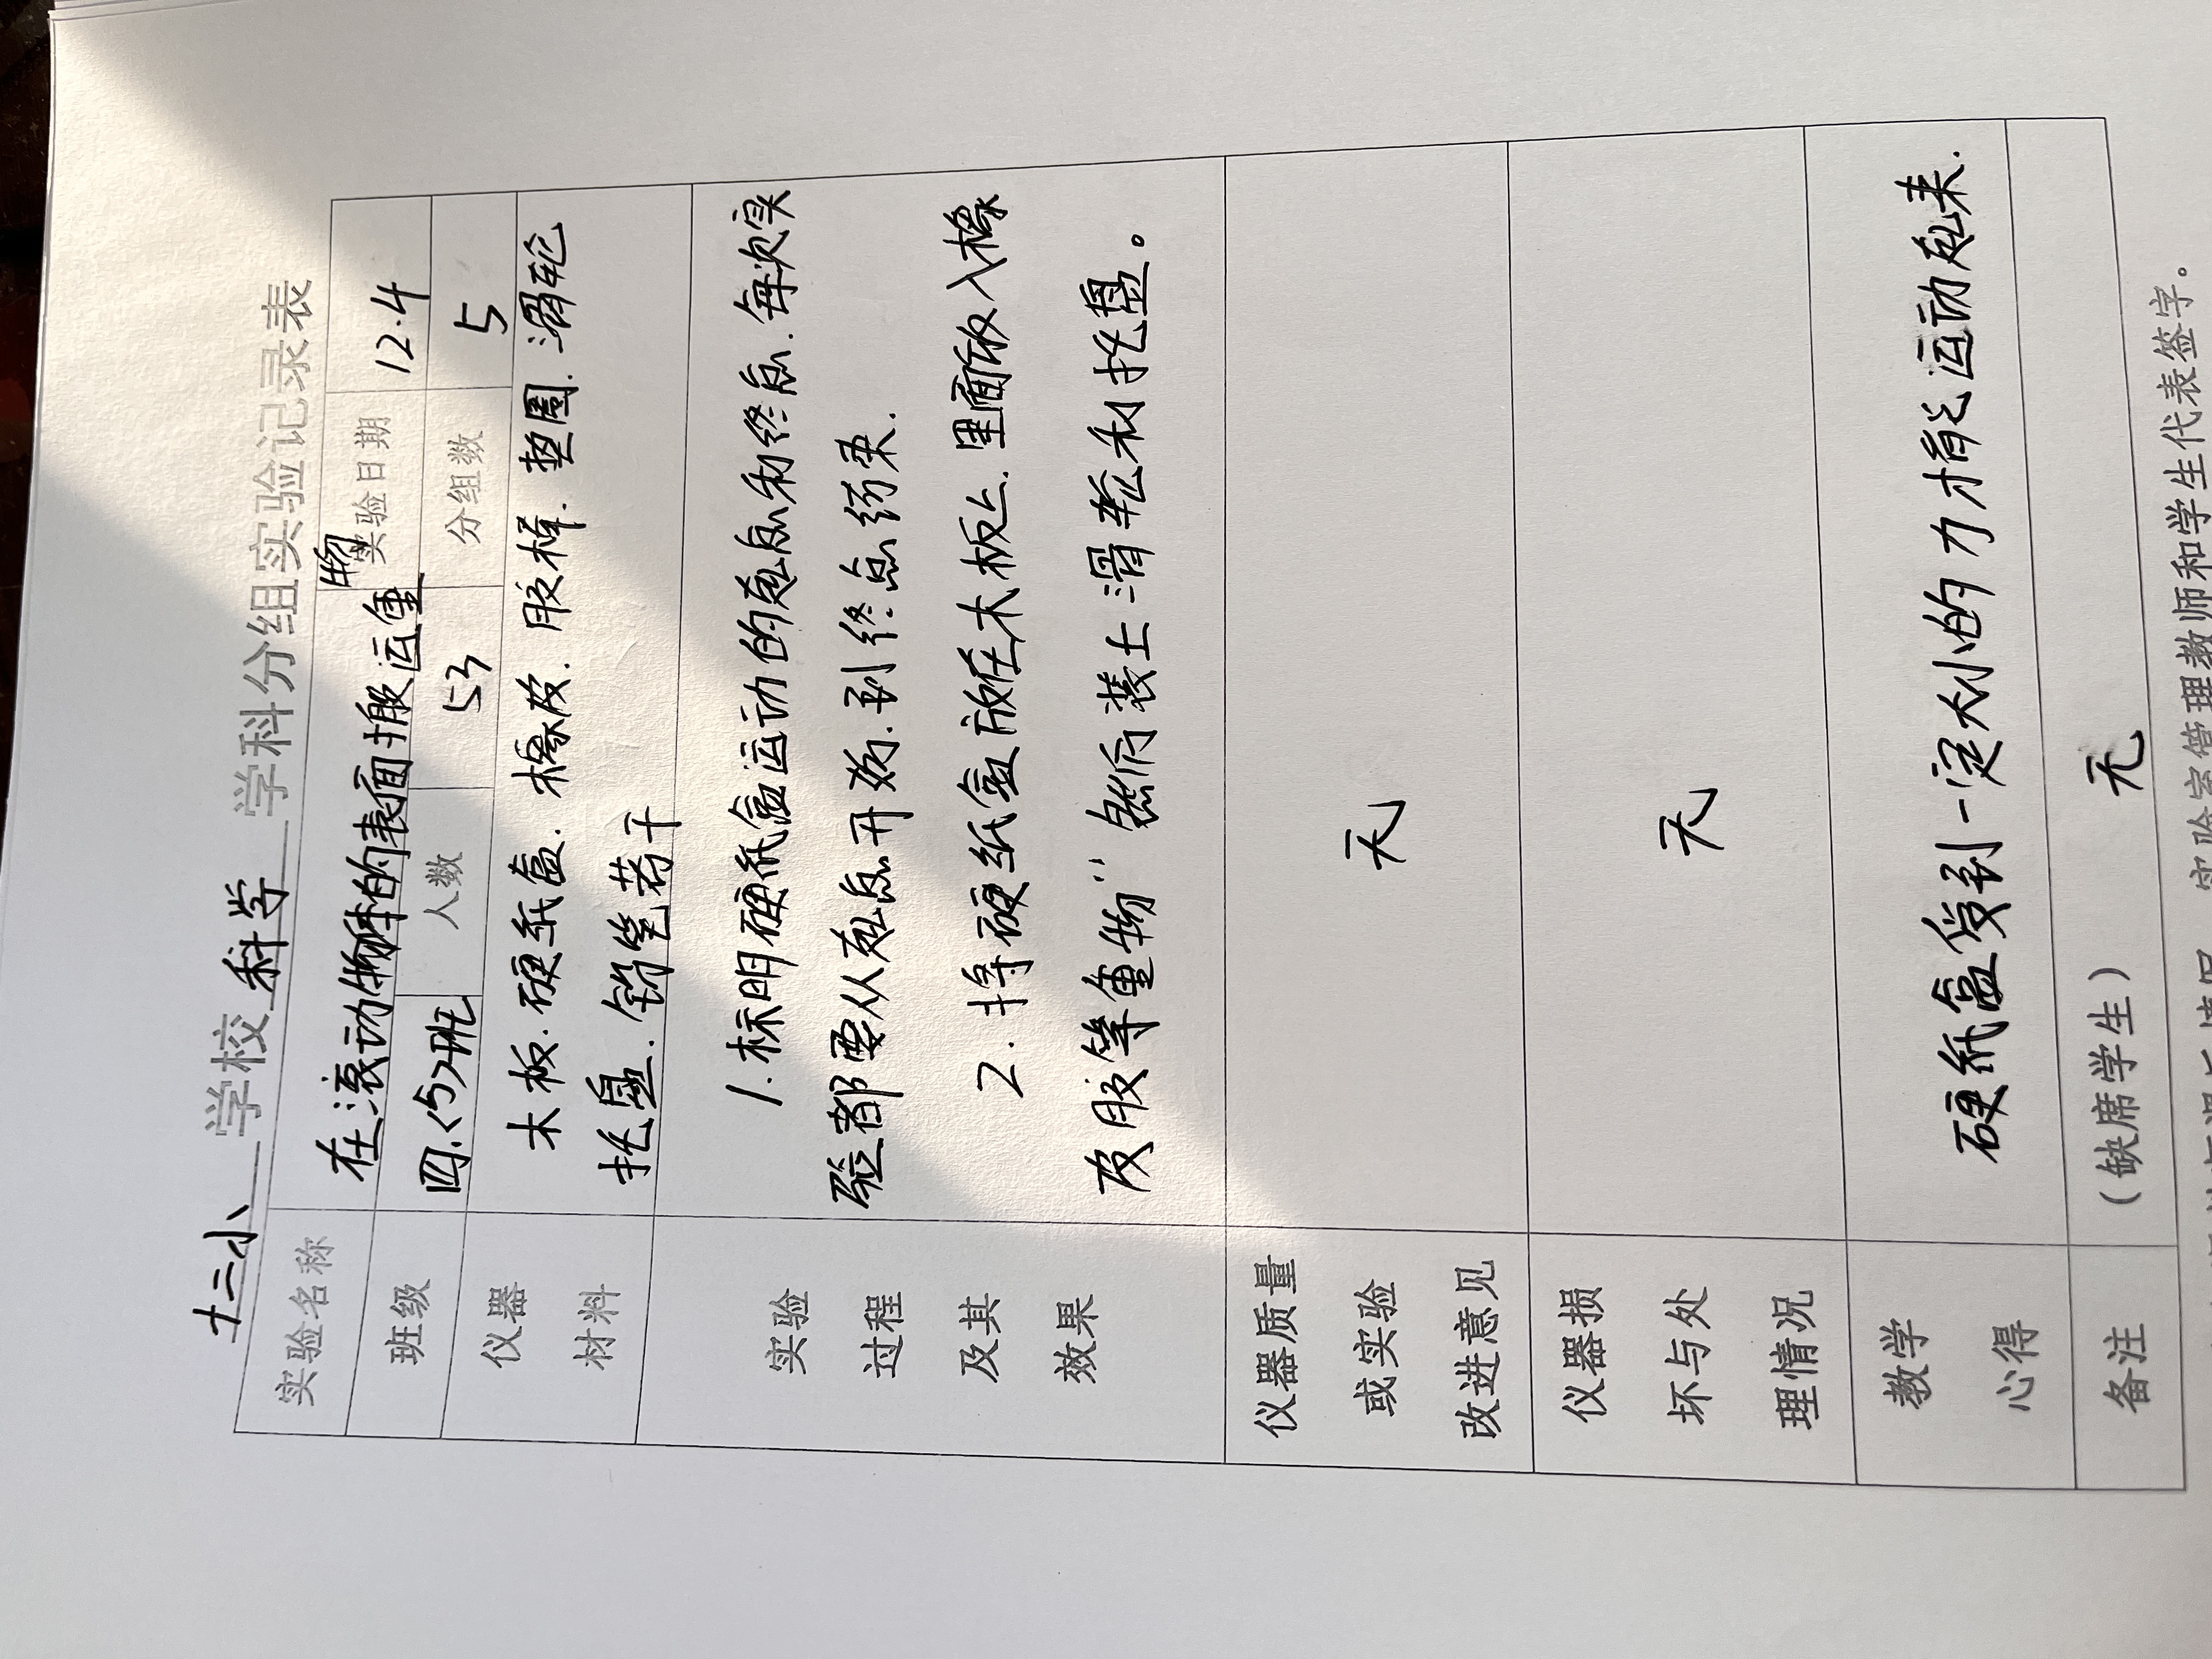 十三小 学校 科学 学科分组实验记录表
实验名称 在滚动物料的表面搬运重物 实验日期 12.4
班级 四.(5)班 人数 53 分组数 5
仪器材料 木板.硬纸盒.橡皮.胶棒.垫圈.滑轮
托盘.铅笔若干
实验过程及其效果
1.标明硬纸盒运动的起点和终点.每次实
验都要从起点开始.到终点结束.
2.将硬纸盒放在木板上.里面放入橡
皮胶等重物"然后装上滑轮和托盘。
仪器质量或实验改进意见 无
仪器损坏与处理情况 无
教学心得 硬纸盒受到一定大小的力才能运动起来.
备注 (缺席学生) 无
实验室管理教师和学生代表签字。